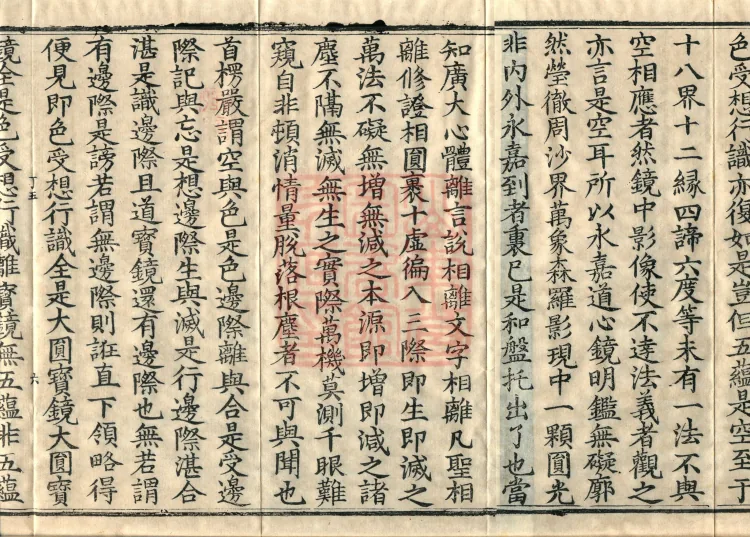 色受想行識亦復如是豈但五蘊是空至于
十八界十二緣四諦六度等未有一法不與
空相應者然鏡中影像使不達法義者觀之
亦言是空耳所以永嘉道心鏡明鑑無礙廓
然瑩徹周沙界萬象森羅影現中一顆圓光
非內外永嘉到者裏已是和盤托出了也當
知廣大心體離言說相離文字相離凡聖相
離修證相圓裹十虛徧入三際即生即滅之
萬法不礙無增無減之本源即增即減之諸
塵不隔無滅無生之實際萬機莫測千眼難
窺自非頓消情量脫落根塵者不可與聞也
首楞嚴謂空與色是色邊際離與合是受邊
際記與忘是想邊際生與滅是行邊際湛合
湛是識邊際且道寶鏡還有邊際也無若謂
有邊際是謗若謂無邊際則誑直下領略得
便見即色受想行識全是大圓寶鏡大圓寶
鏡全是色受想行識離寶鏡無五蘊非五蘊
丁五
六